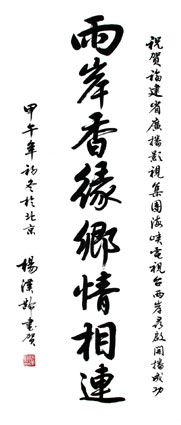 祝賀福建省廣播影視集團海峽電視台兩岸尋啟開播成功
兩岸香緣鄉情相連
甲午年初冬於北京
楊漢軒書賀